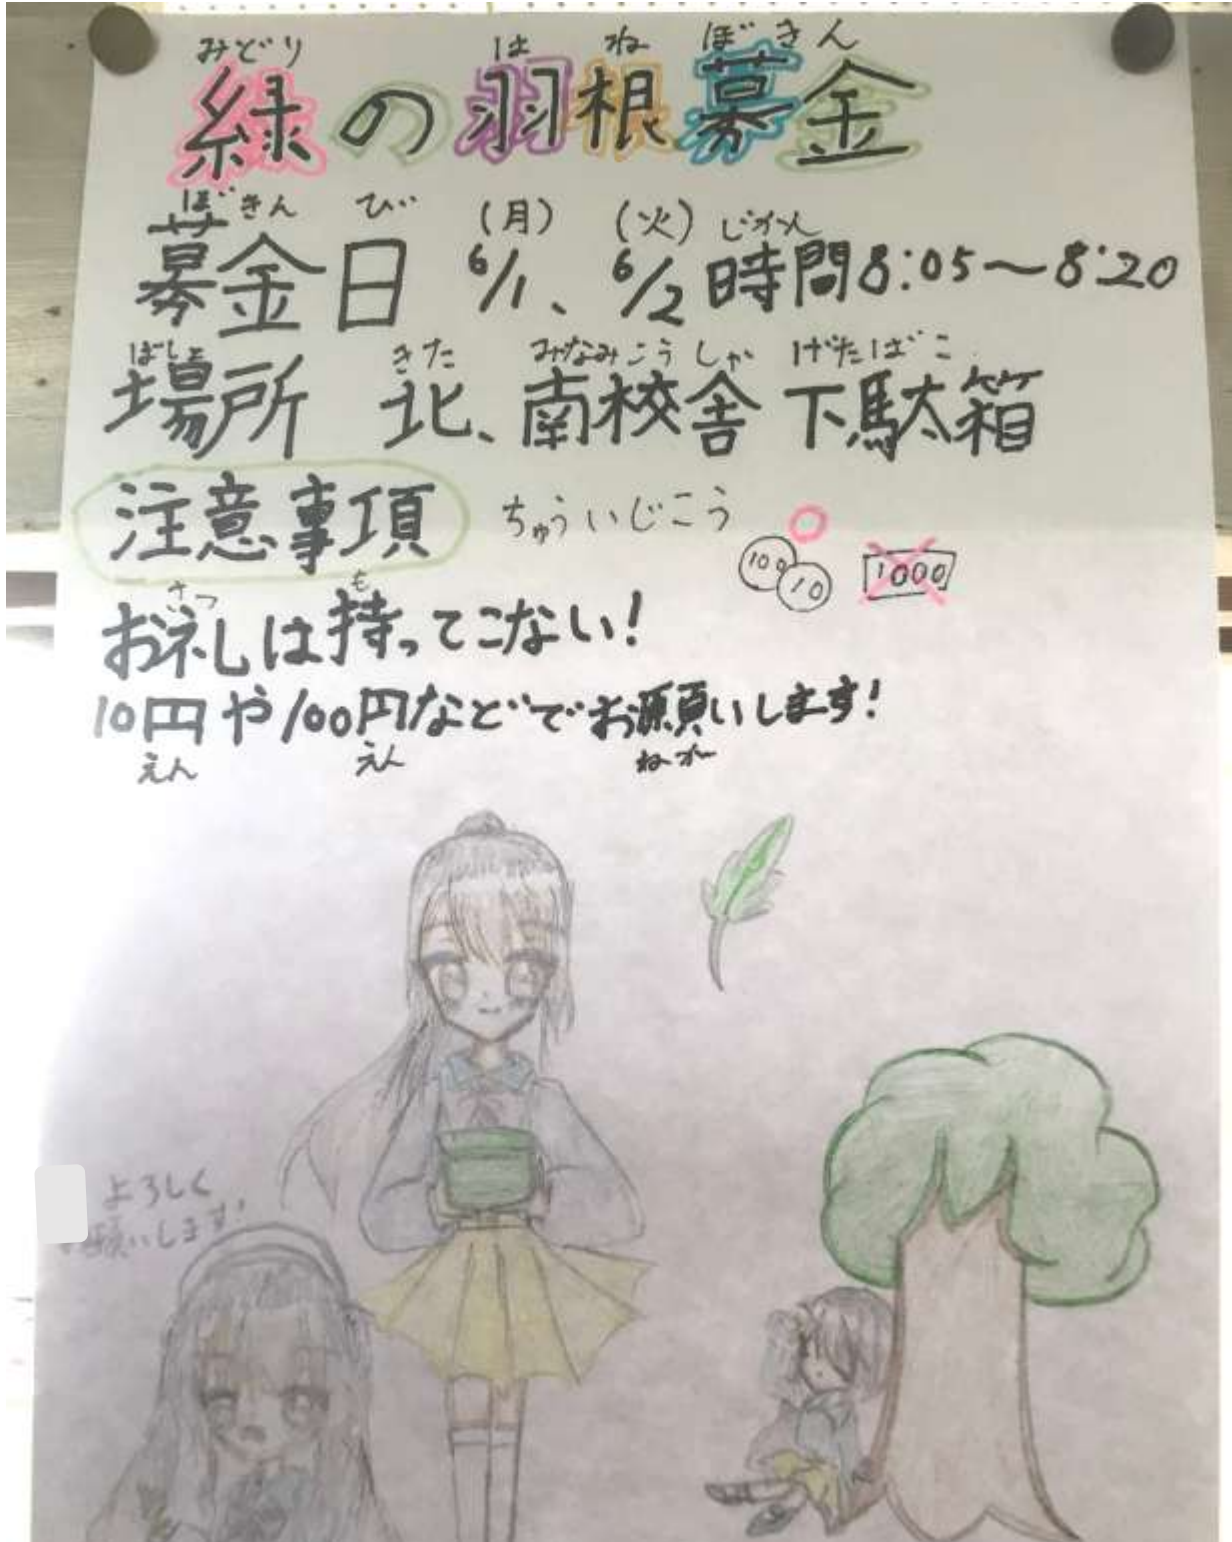 みどり は ね ぼ きん
緑の羽根募金
ぼ きん び じかん
募金日 6/1(月)、6/2(火) 時間8:05~8:20
ばしょ きた みなみこうしゃ げたばこ
場所 北、南校舎 下駄箱
注意事項 ちゅういじこう
100 10 1000
さつ も
お札は持ってこない!
10円や100円などでお願いします!
えん えん ねが
よろしく
願いします!